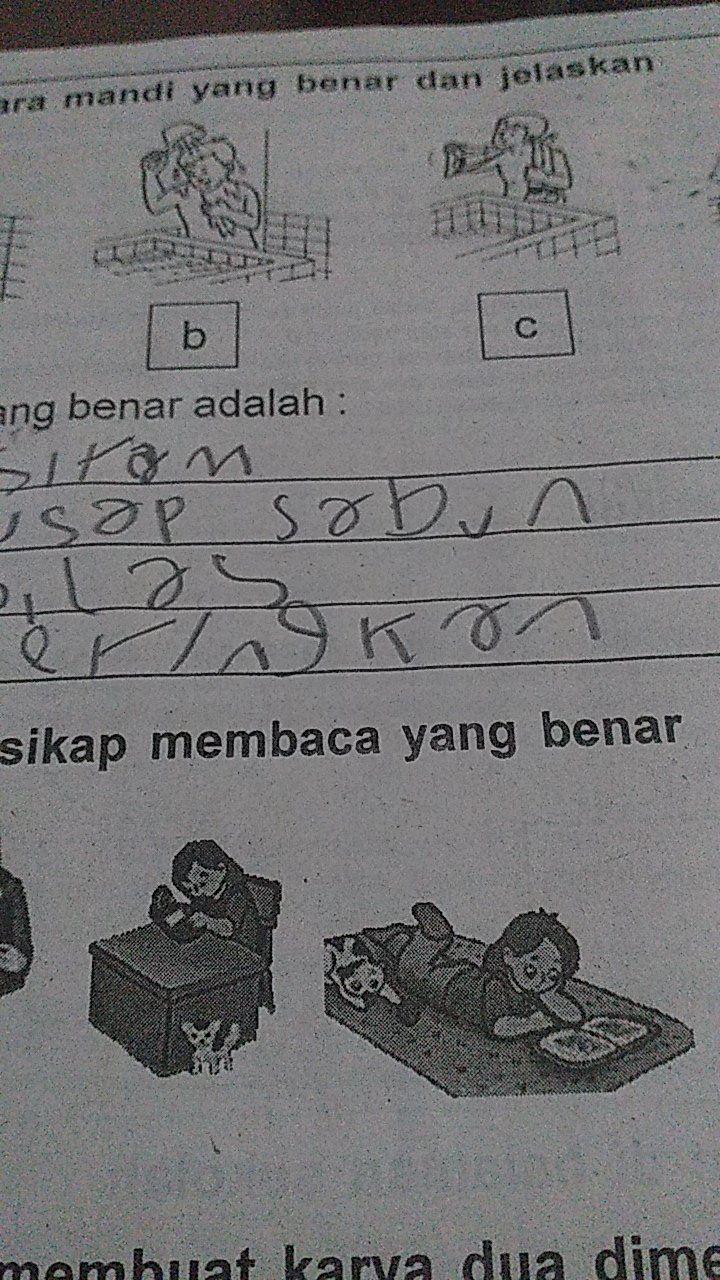 ara mandi yang benar dan jelaskan
b c
ang benar adalah :
siram
usap sabun
bilas
eringkan
sikap membaca yang benar
membuat karya dua dime